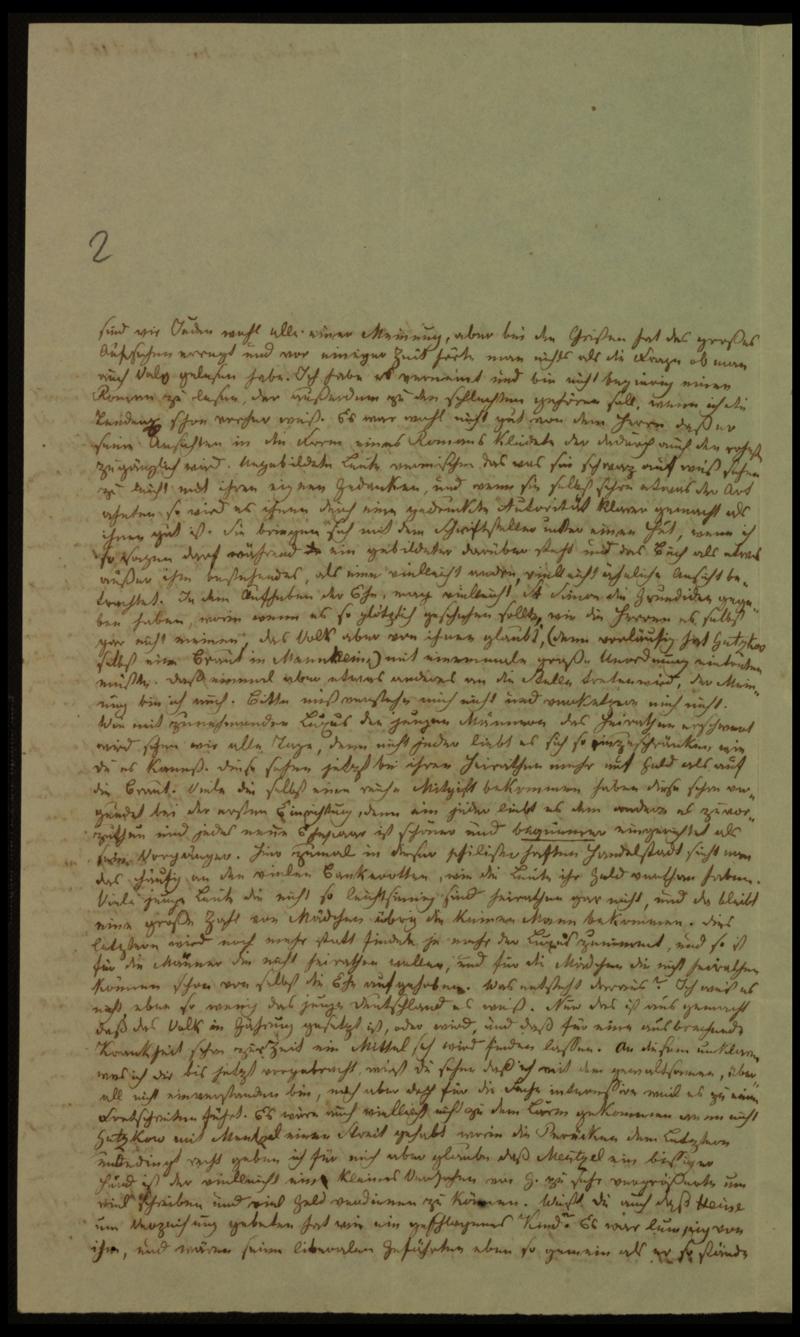 2
sind wir Juden wohl alle einer Meinung, aber bei den Christen hat das großes
Aufsehen erregt und vor einiger Zeit hörte man nichts als die Frage ob man
auch Valy gelesen habe. Ich habe es verneint und bin nicht begierig einen
Roman zu lesen, der außerdem zu den schlechten gehören soll, wenn ich die
Tendenz schon vorher weiß. Es war wohl nicht gut von dem Herrn daß er
seine Ansichten in die Form eines Romans kleidete der dadurch auch den
zugänglich wird. Ungebildete Leute vermischen das was sie schwarz auf weiß sehen
zu leicht mit ihren eignen Gedanken, und wenn sie selbst schon etwas der Art
ahneten so wird es ihnen durch eine gedruckte Autorität klarer gemacht als
ihnen gut ist. Sie bringen sich mit dem Schriftsteller unter einen Hut, wenn ich
so sagen darf während ein gebildeter darüber steht und das Buch als etwas
außer ihm bestehendes, als eine vielleicht andre, vielleicht ähnliche Ansicht be-
trachtet. In dem Aufheben der Ehe, mag vielleicht St Simon die Grundidee gege-
ben haben, worin wenn es so plötzlich geschehen sollte, wie die Herren es selbst
gar nicht meinen, das Volk aber von ihnen glaubt, (denn vorläufig hat Gutzkow
selbst eine Braut in Mannheim) mit einemmale große Unordnung eintreten
müßte. Daß einmal aber etwas anderes an die Stelle treten wird, der Mei-
nung bin ich auch. Bitte mißverstehe mich nicht und verketzere mich nicht.
Wie mit zunehmenden Luxus den jungen Männern das Heirathen erschwert
wird sehen wir alle Tage, denn nicht jeder liebt es sich so einzuschränken, wie
du es kannst. Diese sehen jetzt bei ihren Heirathen mehr auf Geld als auf
die Braut. Viele die selbst eine reiche Mitgift bekommen haben diese schon ver-
geudet bei der ersten Einrichtung, denn ein jeder liebt es dem andern es zuvor-
zuthun und jedes neue Ehepaar ist schöner und bequemer eingerichtet als
sein Vorgänger. Hier zumal in dieser philisterhaften Handelstadt sieht man
das häufig an den vielen Bankerotten, wie die Leute ihr Geld verthan haben.
Viele junge Leute die nicht so leichtsinnig sind heirathen gar nicht, und da bleibt
eine große Zahl von Mädchen übrig die keinen Mann bekommen. Dies
letztere wird noch mehr statt finden je mehr der Luxus zunimmt, und so ist
für die Männer die nicht heirathen wollen, und für die Mädchen die nicht heirathen
können schon von selbst die Ehe aufgehoben. Was entsteht daraus? Ich weiß es
nicht, eben so wenig das junge Deutschland es weiß. Nur das ist ausgemacht
daß das Volk in Gährung gesetzt ist, oder wird, und daß für eine ausbrechende
Krankheit schon zur Zeit ein Mittel sich wird finden lassen. An diesem unklaren
was ich dir bis jetzt vorgebracht, wirst du sehen daß ich mit dem gewaltsamen, über-
all nicht einverstanden bin, mich aber doch für die Sache interessire weil es zu einem
Fortschreiten führt. Es wäre auch vielleicht nicht zu dem Lärm gekommen wenn nicht
Gutzkow mit Menzel einen Streit gehabt worin die Perücken dem Letztern
unbedingt recht geben ich für mich aber glaube daß Menzel ein bissiger
Hund ist der vielleicht ein kleines Versehen von G. zu sehr vergrößerte um
viel schreiben und viel Geld verdienen zu können. Weißt du auch daß Heine
um Verzeihung gebeten hat wie ein geschlagenes Kind? Es war lumpig von
ihm, und wären seine liberalen Gefährten eben so gemein als er so stände